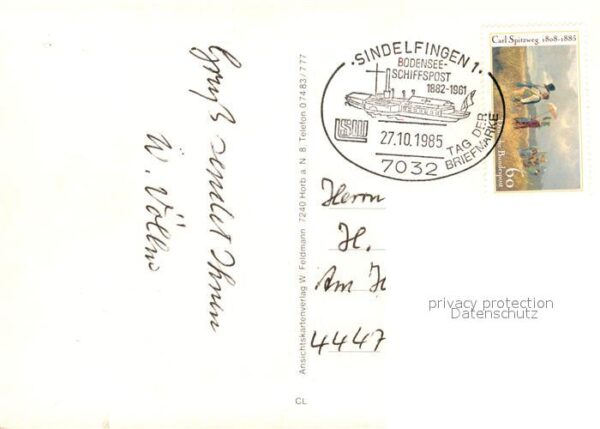 Gruß sendet Ihnen
W. Völlm
Ansichtskartenverlag W. Feldmann 7240 Horb a. N. 8 Telefon 0 74 83 / 7 77
CL
· SINDELFINGEN 1 ·
BODENSEE-
SCHIFFSPOST
1882-1961
27.10.1985
TAG DER
BRIEFMARKE
7032
Carl Spitzweg 1808-1885
Deutsche Bundespost
60
Herrn
H.
Am H
4447
privacy protection
Datenschutz